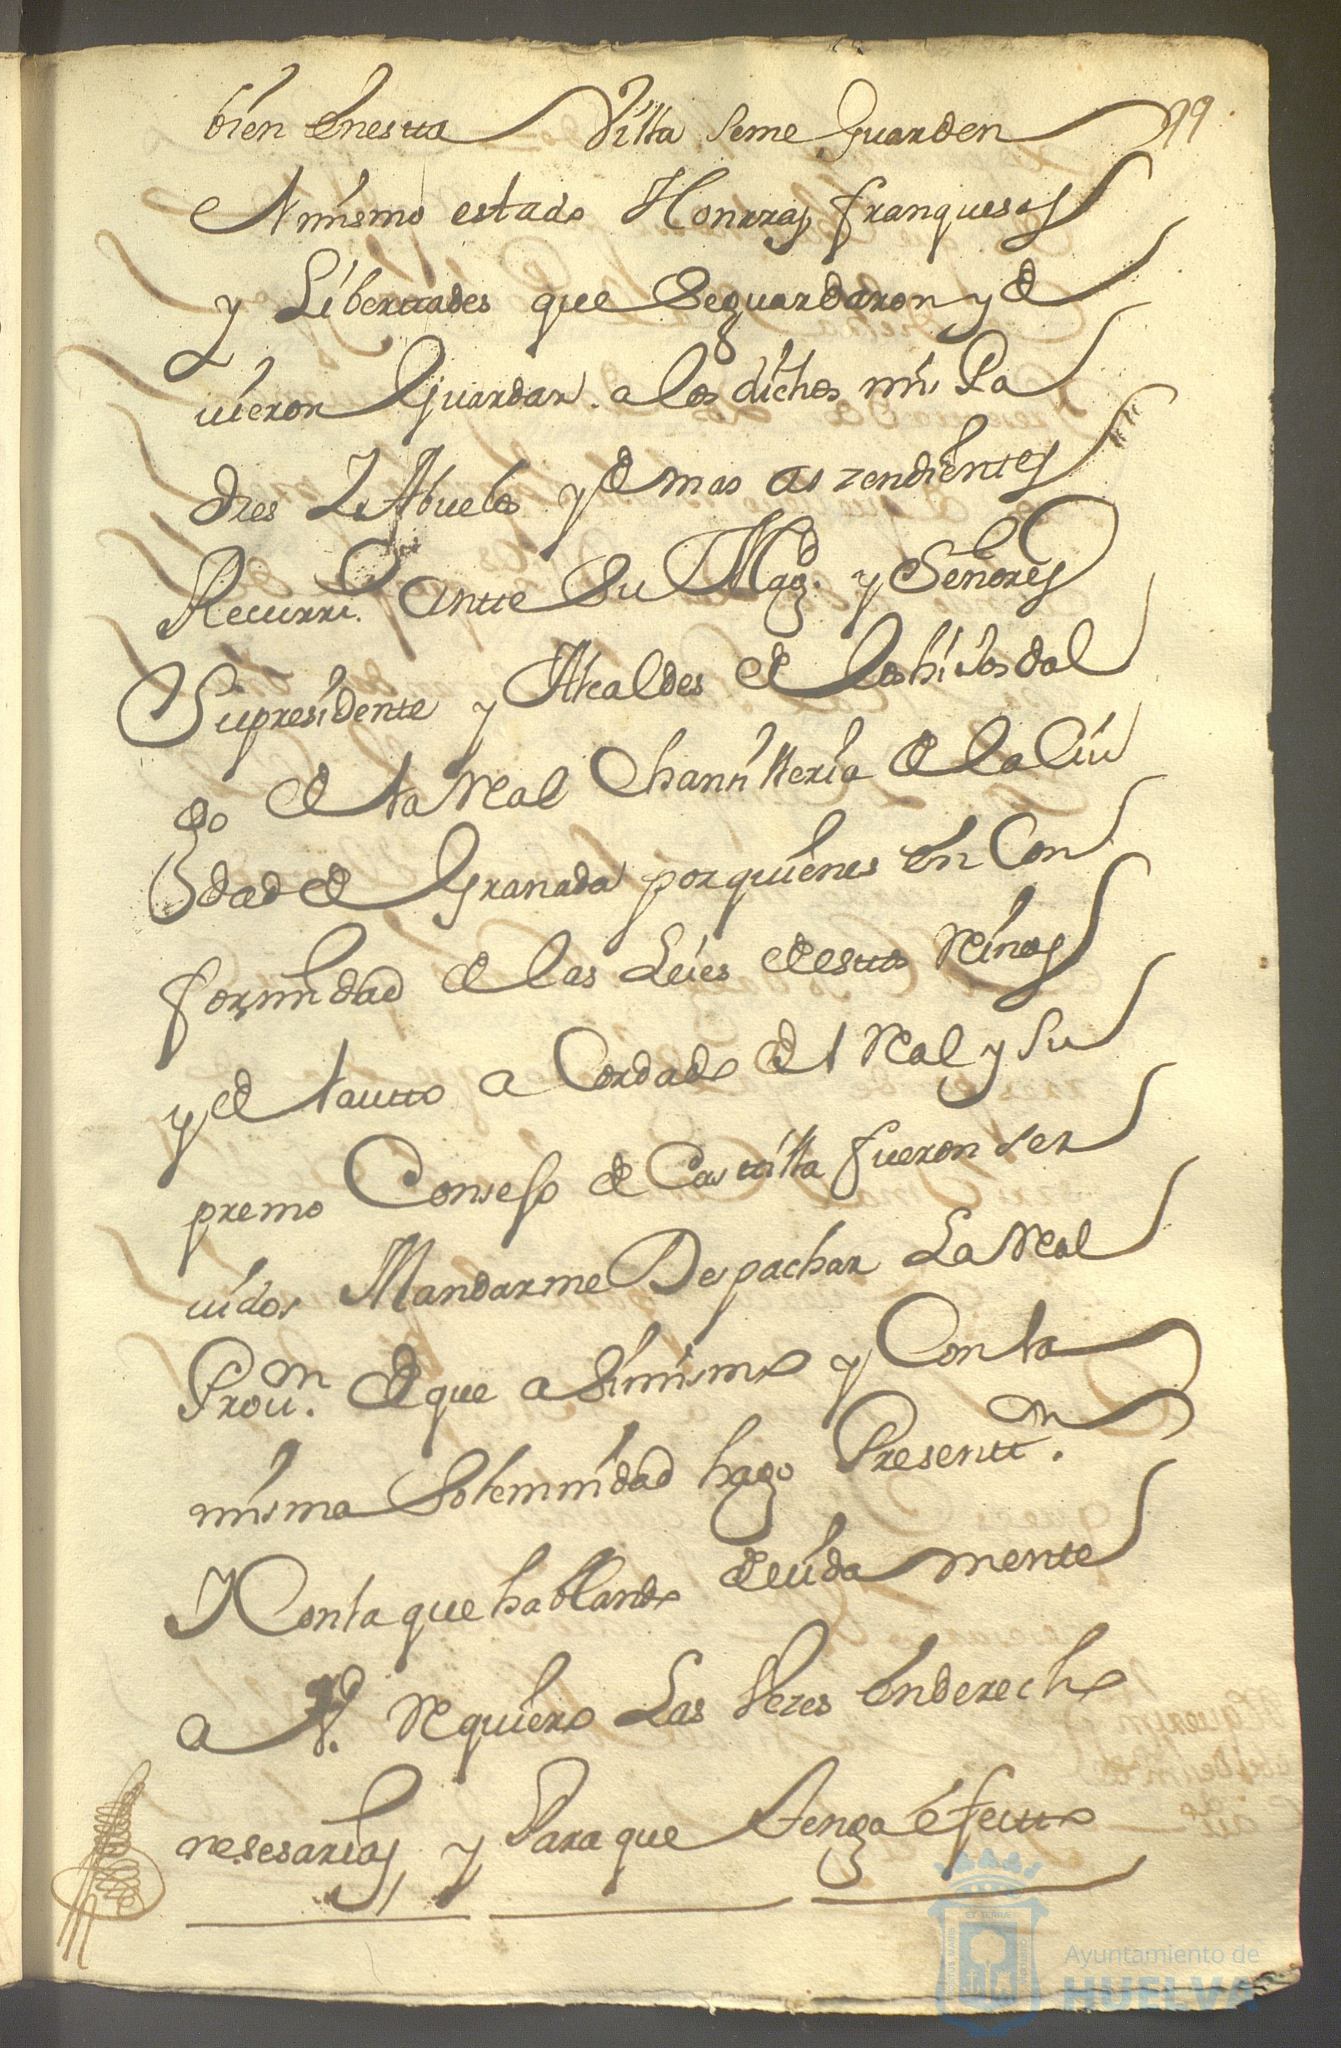 bien enestta Villa seme Guarden 99
el mismo estado Honrras franquesas
y Libertades que se guardaron y de
vieron Guardar a los dichos mis Pa
dres Y Abuelos y demas aszendientes
Recurri. antte Su Magd. y Señores
Supresidente y Alcaldes de los hijos dal
go de la Real Chansilleria de la Ciu
dad de Granada por quienes en Con
formidad de las Leies destos Reinos
y del autto a Cordado del Real y Su
premo Consejo de Castilla fueron ser
vidos Mandarme Despachar La Real
Provn. de que asimismo y Con la
misma Solemnidad hago Presenttn.
Y Con la que hablando devida mente
a Vd. Requiero Las Vezes en derecho
nesesarias y Para que tenga efectto
Ayuntamiento de
HUELVA